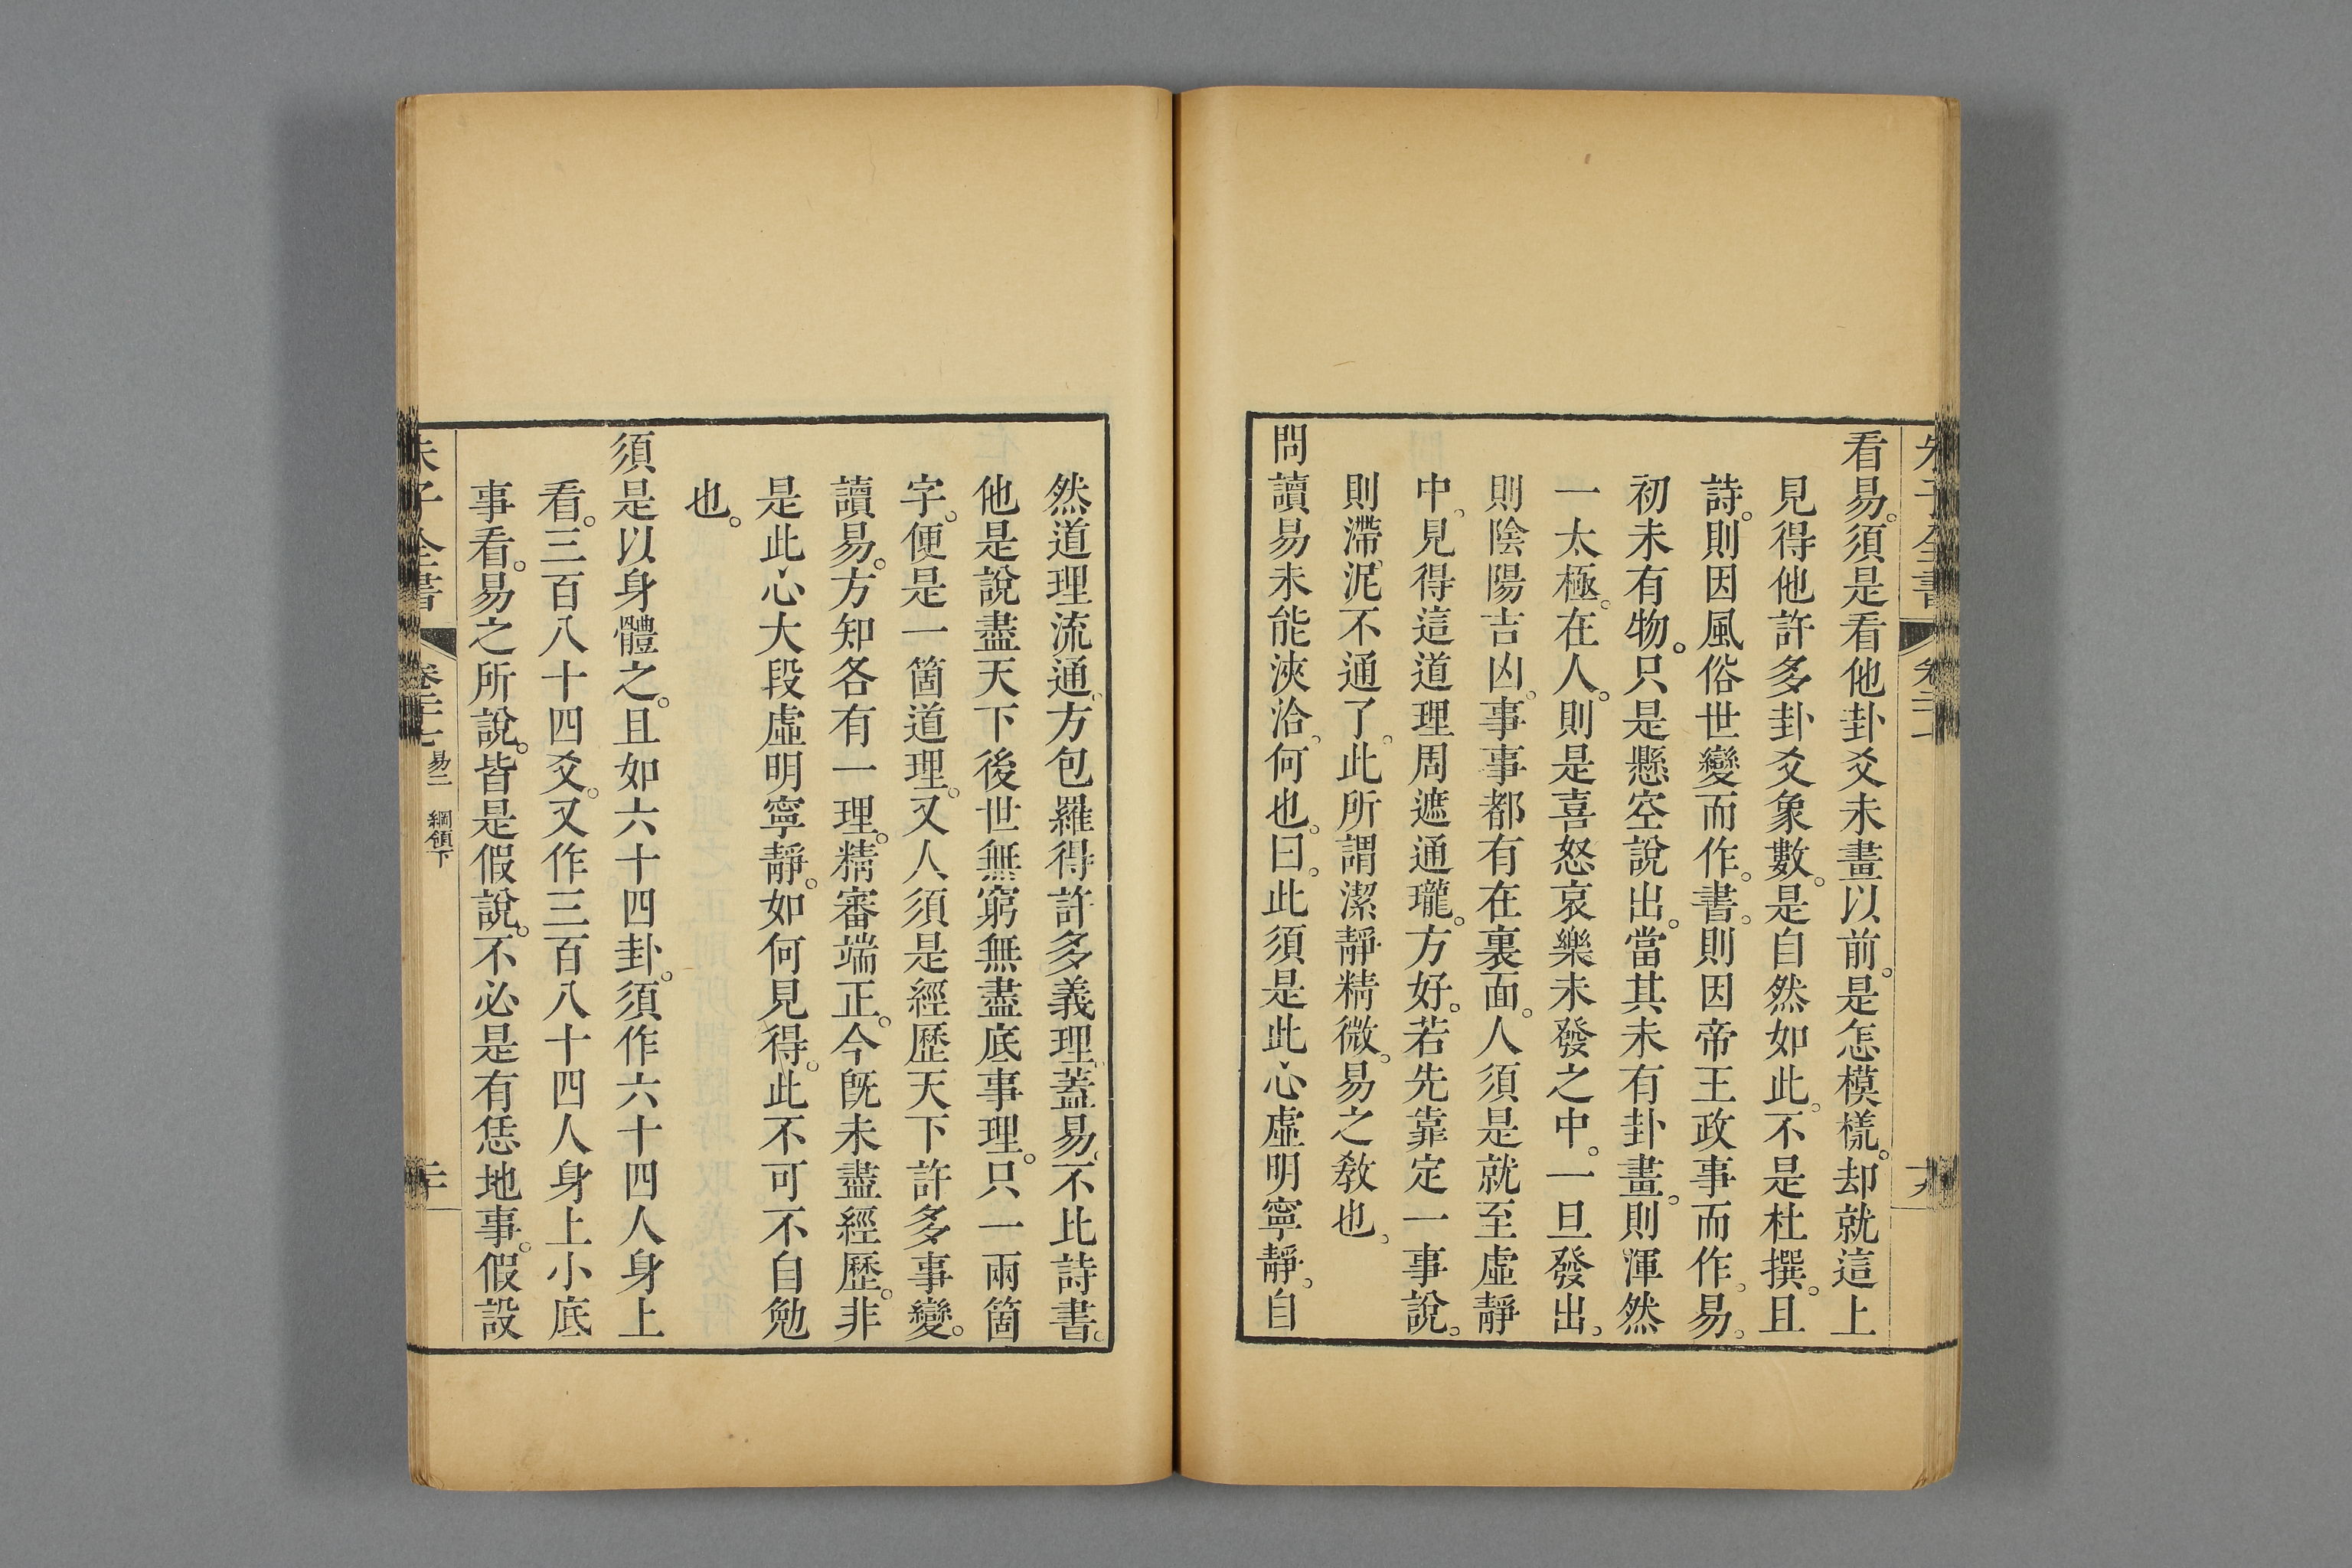 看易。須是看他卦爻未畫以前。是怎模樣。却就這上
見得他許多卦爻象數。是自然如此。不是杜撰。且
詩。則因風俗世變而作。書。則因帝王政事而作。易。
初未有物。只是懸空說出。當其未有卦畫。則渾然
一太極。在人。則是喜怒哀樂未發之中。一旦發出。
則陰陽吉凶。事事都有在裏面。人須是就至虛靜
中。見得這道理周遮通瓏。方好。若先靠定一事說。
則滯泥不通了。此所謂潔靜精微。易之敎也。
問讀易未能浹洽。何也。曰。此須是此心虛明寧靜。自
然道理流通。方包羅得許多義理。蓋易。不比詩書。
他是說盡天下後世無窮無盡底事理。只一兩箇
字。便是一箇道理。又人須是經歷天下許多事變。
讀易。方知各有一理。精審端正。今旣未盡經歷。非
是此心大段虛明寧靜。如何見得。此不可不自勉
也。
須是以身體之。且如六十四卦。須作六十四人身上
看。三百八十四爻。又作三百八十四人身上小底
事看。易之所說。皆是假說。不必是有恁地事。假設
朱子全書 卷二十七 易二 綱領下